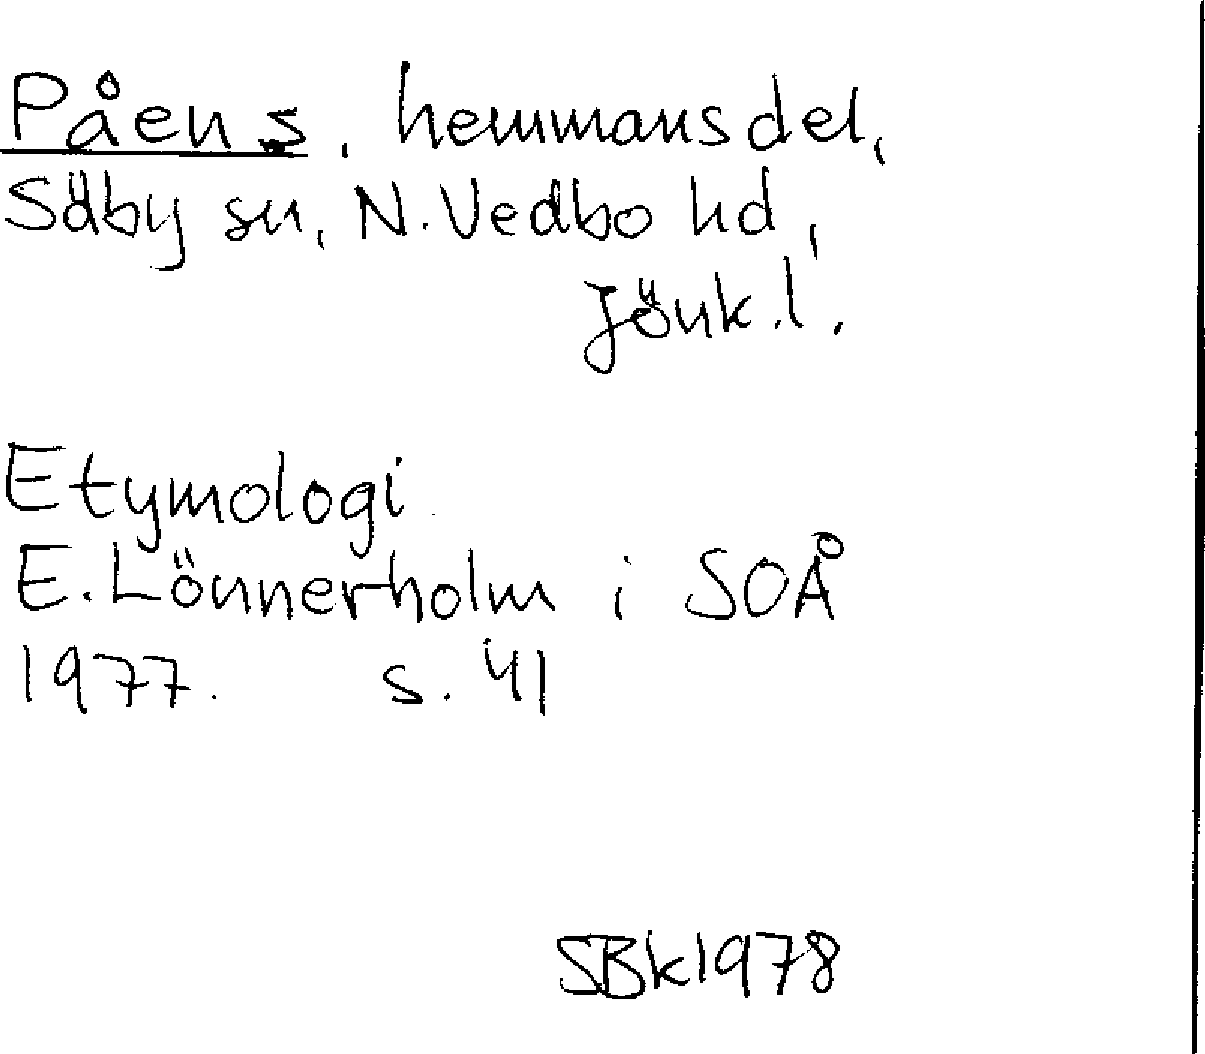 Påens, hemmansdel,
Säby sn, N. Vedbo hd,
Jönk. l.
Etymologi
E. Lönnerholm i SOÅ
1977. s. 41
SBk 1978